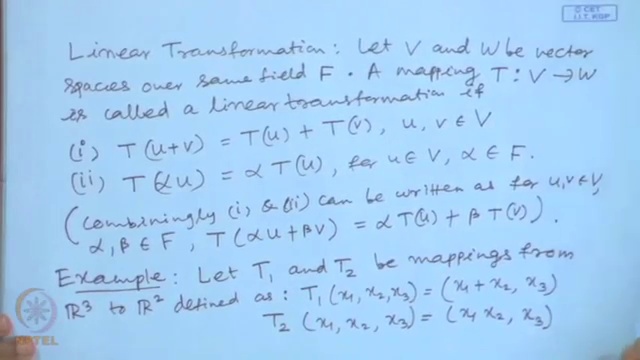 © CET
I.I.T. KGP
Linear Transformation: Let V and W be vector
spaces over same field F. A mapping T: V → W
is called a linear transformation if
(i) T(u+v) = T(u) + T(v), u, v ∈ V
(ii) T(αu) = α T(u), for u ∈ V, α ∈ F.
(Combiningly (i) & (ii) can be written as for u, v ∈ V,
α, β ∈ F, T(αu + βv) = α T(u) + β T(v)).
Example: Let T₁ and T₂ be mappings from
ℝ³ to ℝ² defined as: T₁(x₁, x₂, x₃) = (x₁ + x₂, x₃)
T₂(x₁, x₂, x₃) = (x₁ x₂, x₃)
NPTEL